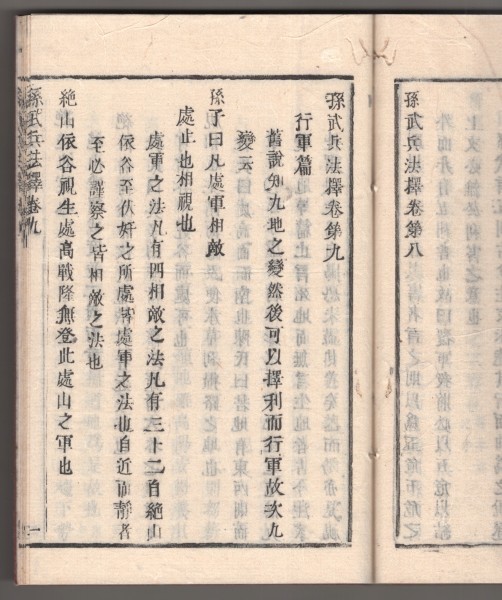 孫武兵法擇卷第八
孫武兵法擇卷第九
行軍篇
舊說知九地之變然後可以擇利而行軍故次九
變云
孫子曰凡處軍相敵
處止也相視也
處軍之法凡有四相敵之法凡有三十二自絶山
依谷至伏奸之所處皆處軍之法也自近而靜者
至必謹察之皆相敵之法也
絶山依谷視生處高戰隆無登此處山之軍也
孫武兵法擇卷九
一